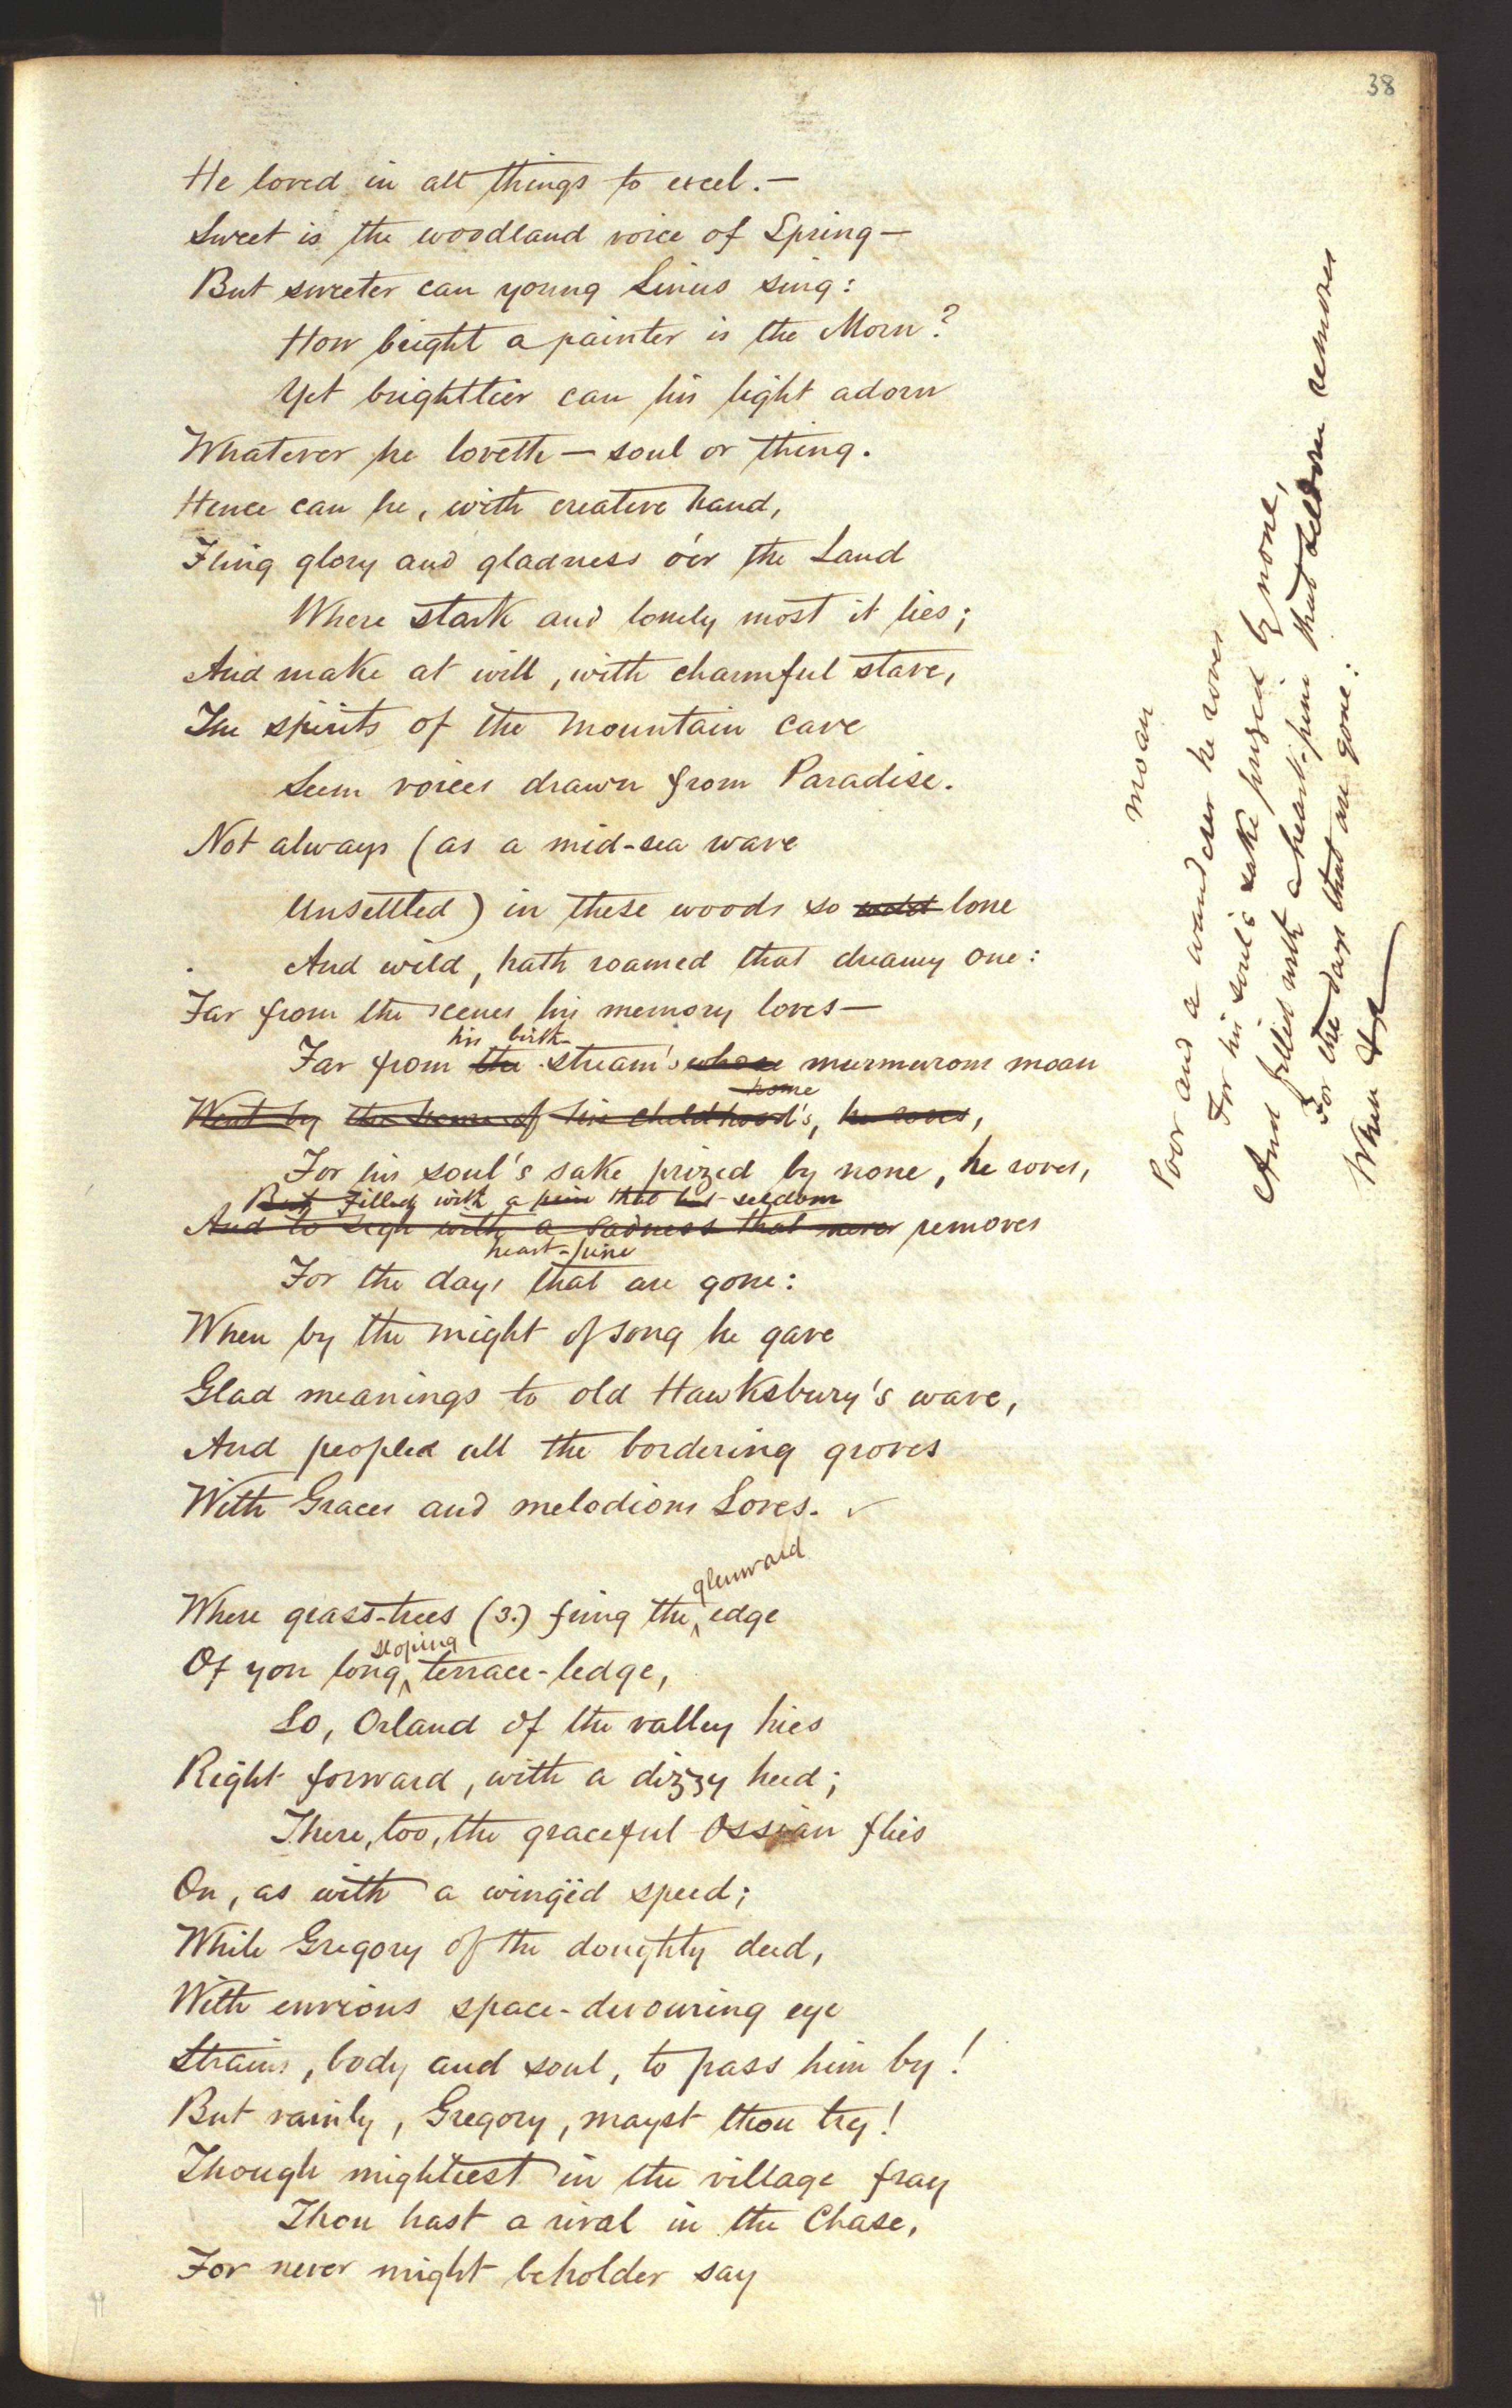 38
He loved in all things to excel.—
Sweet is the woodland voice of Spring—
But sweeter can young Linus sing:
How bright a painter is the Morn?
Yet brighttier can his light adorn
Whatever he loveth — soul or thing.
Hence can he, with creative hand,
Fling glory and gladness o'er the Land
Where stark and lonely most it lies;
And make at will, with charmful stave,
The spirits of the mountain cave
Seem voices drawn from Paradise.
Not always (as a mid-sea wave
Unsettled) in these woods so lone
And wild, hath roamed that dreamy one:
Far from the scenes his memory loves—
his birth-
Far from the stream's whose murmurous moan
home
Went by the home of his childhood's, he roves,
For his soul's sake prized by none, he roves,
But filled with a pine that but seldom
And to sigh with a sadness that never removes
heart-pine
For the days that are gone:
When by the might of song he gave
Glad meanings to old Hawksbury's wave,
And peopled all the bordering groves
With Graces and melodious Loves.
glenward
Where grass-trees (3.) fring the edge
sloping
Of yon long terrace-ledge,
Lo, Orland of the valley hies
Right forward, with a dizzy heed;
There, too, the graceful Ossian flies
On, as with a wingëd speed;
While Gregory of the doughty deed,
With envious space-devouring eye
Strains, body and soul, to pass him by!
But vainly, Gregory, mayst thou try!
Though mightiest in the village fray
Thou hast a rival in the Chase,
For never might beholder say
moan
Poor and a wanderer he roves
For his soul's sake prized by none,
And filled with a heart-pine that seldom removes
For the days that are gone:
When &c